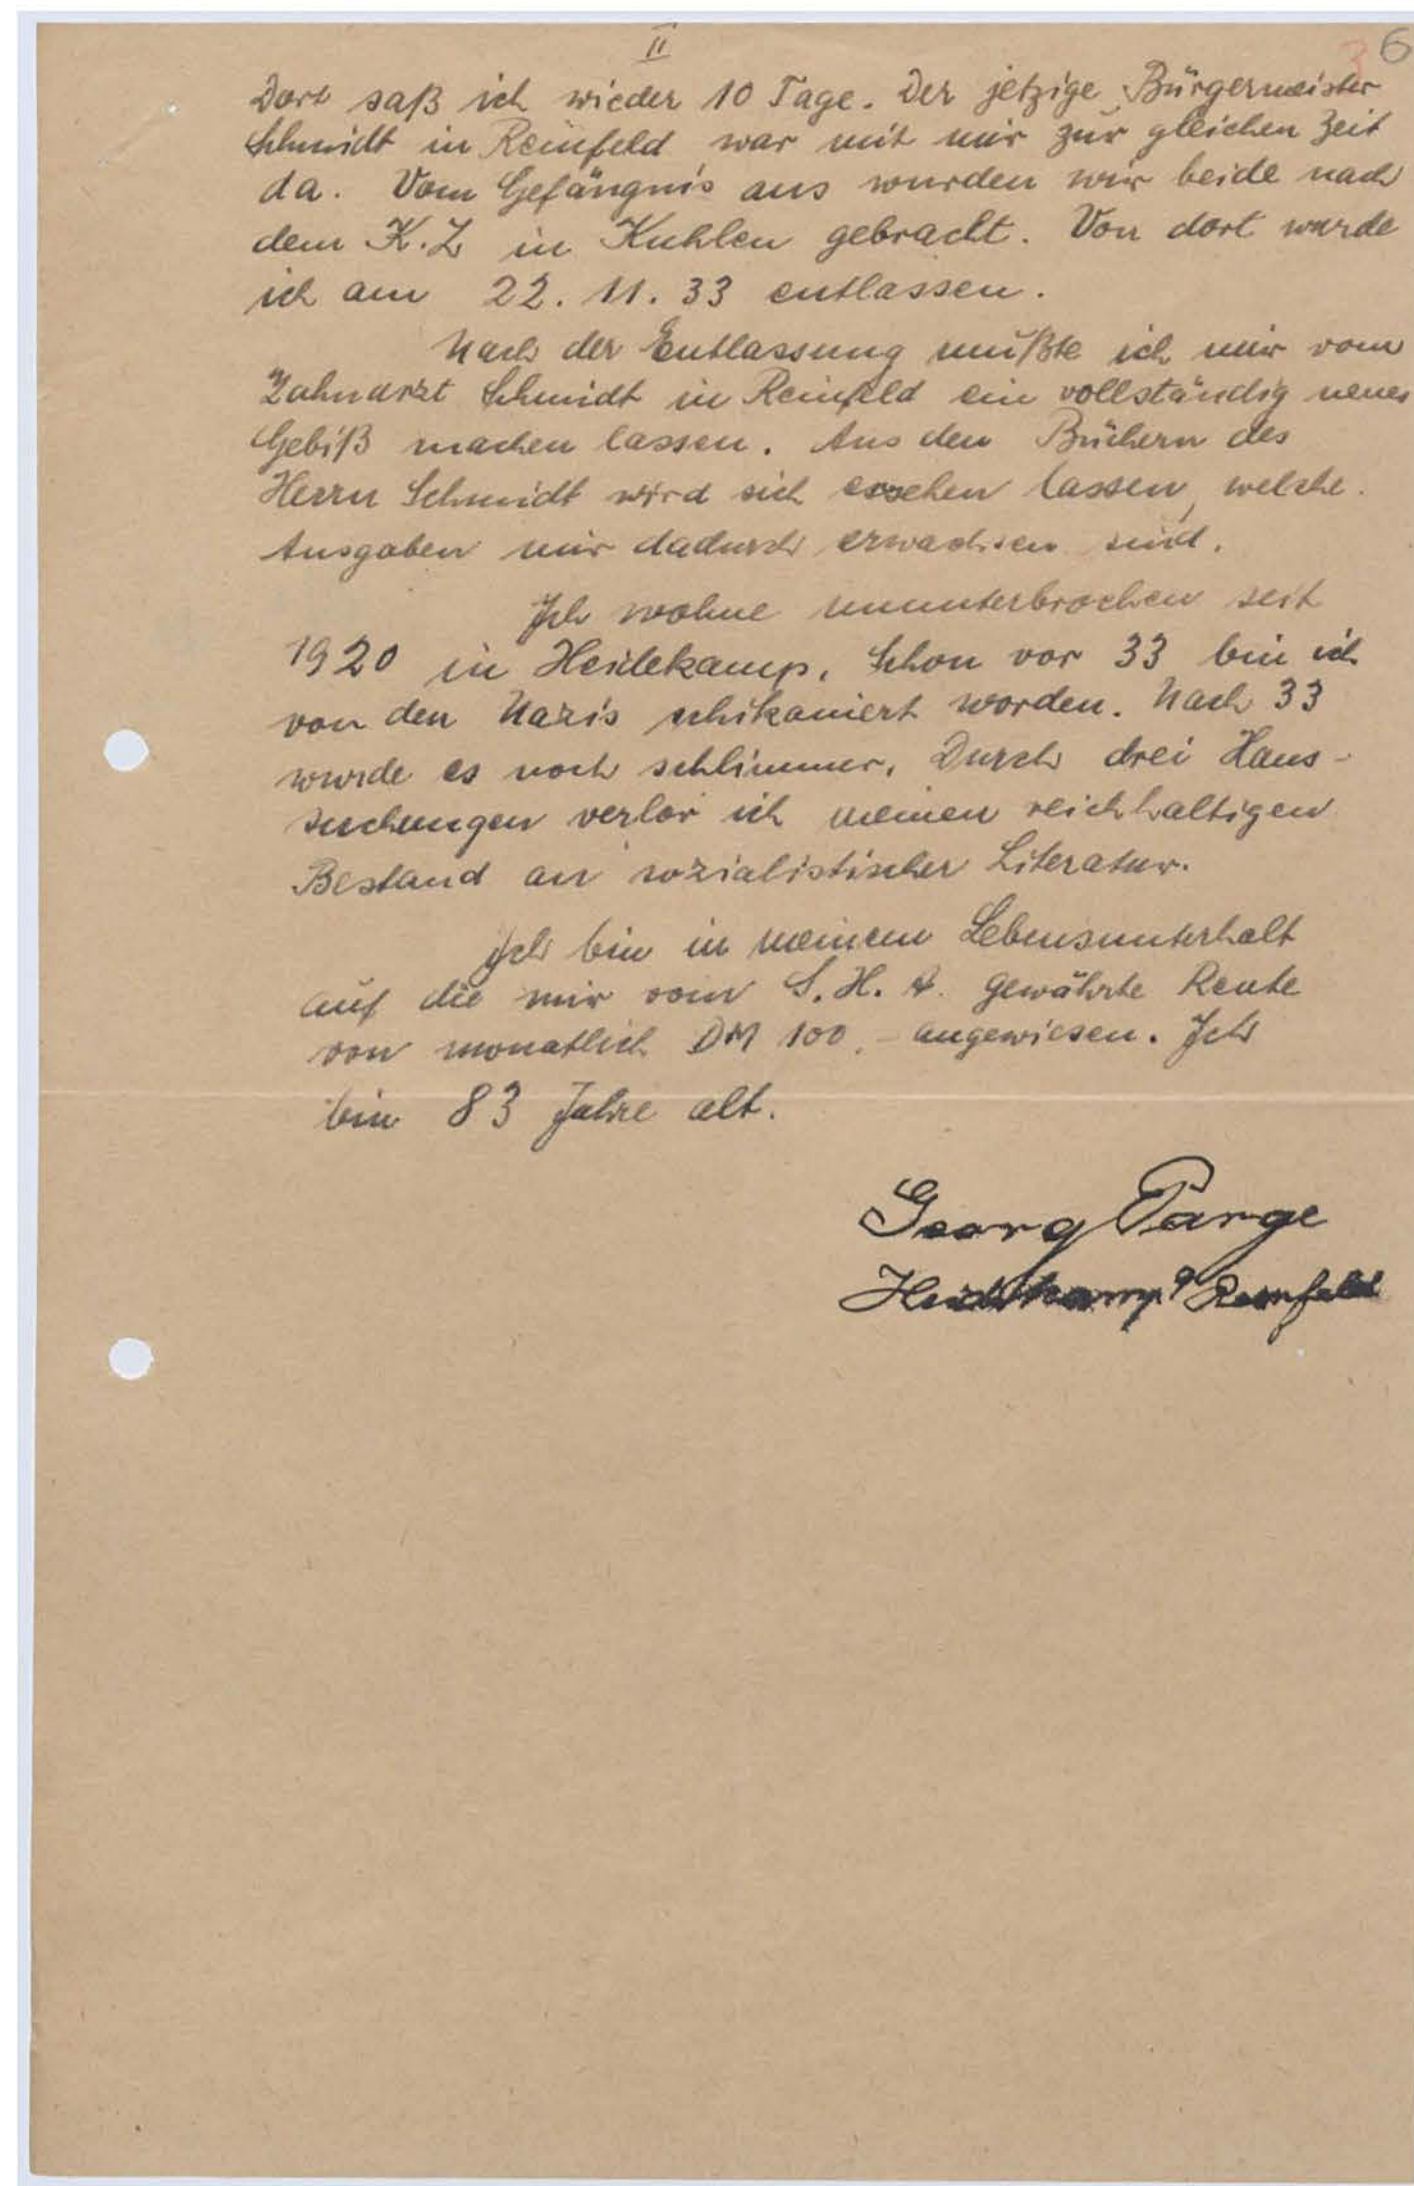 II
3 6
Dort saß ich wieder 10 Tage. Der jetzige Bürgermeister
Schmidt in Reinfeld war mit mir zur gleichen Zeit
da. Vom Gefängnis aus wurden wir beide nach
dem K.Z in Kuhlen gebracht. Von dort wurde
ich am 22. 11. 33 entlassen.
Nach der Entlassung mußte ich mir vom
Zahnarzt Schmidt in Reinfeld ein vollständig neues
Gebiß machen lassen. Aus den Büchern des
Herrn Schmidt wird sich ersehen lassen, welche
Ausgaben mir dadurch erwachsen sind.
Ich wohne ununterbrochen seit
1920 in Heidekamp. Schon vor 33 bin ich
von den Nazis schikaniert worden. Nach 33
wurde es noch schlimmer. Durch drei Haus-
suchungen verlor ich meinen reichhaltigen
Bestand an sozialistischer Literatur.
Ich bin in meinem Lebensunterhalt
auf die mir vom S. H. A. gewährte Rente
von monatlich DM 100,- angewiesen. Ich
bin 83 Jahre alt.
Georg Parge
Heidekamp Reinfeld